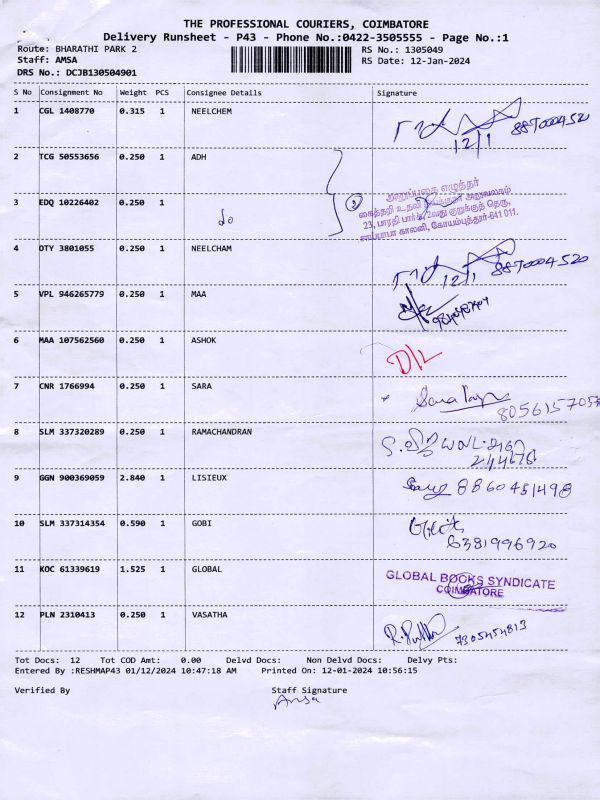 THE PROFESSIONAL COURIERS, COIMBATORE
Delivery Runsheet - P43 - Phone No.:0422-3505555 - Page No.:1
Route: BHARATHI PARK 2 RS No.: 1305049
Staff: AMSA RS Date: 12-Jan-2024
DRS No.: DCJB130504901
S No Consignment No Weight PCS Consignee Details Signature
1 CGL 1408770 0.315 1 NEELCHEM
12/1 8870004520
2 TCG 50553656 0.250 1 ADH
அலுவலகம்
3 EDQ 10226402 0.250 1 2
23, பாரதி பார்க் 2வது குறுக்குத் தெரு,
சாய்பாபா காலனி, கோயம்புத்தூர்-641 011.
do
4 DTY 3801055 0.250 1 NEELCHAM
12/1 8870004520
5 VPL 946265779 0.250 1 MAA
6 MAA 107562560 0.250 1 ASHOK D/L
7 CNR 1766994 0.250 1 SARA
8 SLM 337320289 0.250 1 RAMACHANDRAN
9 GGN 900369059 2.840 1 LISIEUX 8860451498
10 SLM 337314354 0.590 1 GOBI
6381996920
11 KOC 61339619 1.525 1 GLOBAL GLOBAL BOOKS SYNDICATE
COIMBATORE
12 PLN 2310413 0.250 1 VASATHA 7305454813
Tot Docs: 12 Tot COD Amt: 0.00 Delvd Docs: Non Delvd Docs: Delvy Pts:
Entered By :RESHMAP43 01/12/2024 10:47:18 AM Printed On: 12-01-2024 10:56:15
Verified By Staff Signature
Amsa